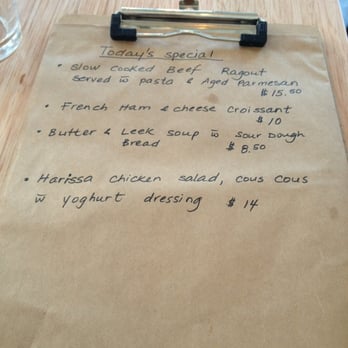 Today's special
• Slow Cooked Beef Ragout
Served w̄ pasta & Aged Parmesan
$15.50
• French Ham & cheese Croissant
$10
• Butter & Leek soup w̄ sour Dough
Bread $8.50
• Harissa chicken salad, cous cous
w̄ yoghurt dressing $14